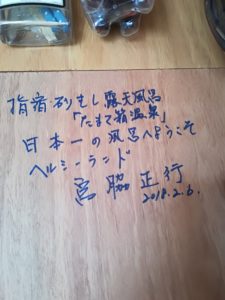 指宿・砂むし露天風呂
「たまて箱温泉」
日本一の風呂へようこそ
ヘルシーランド
宮脇 正行
2018.2.6.